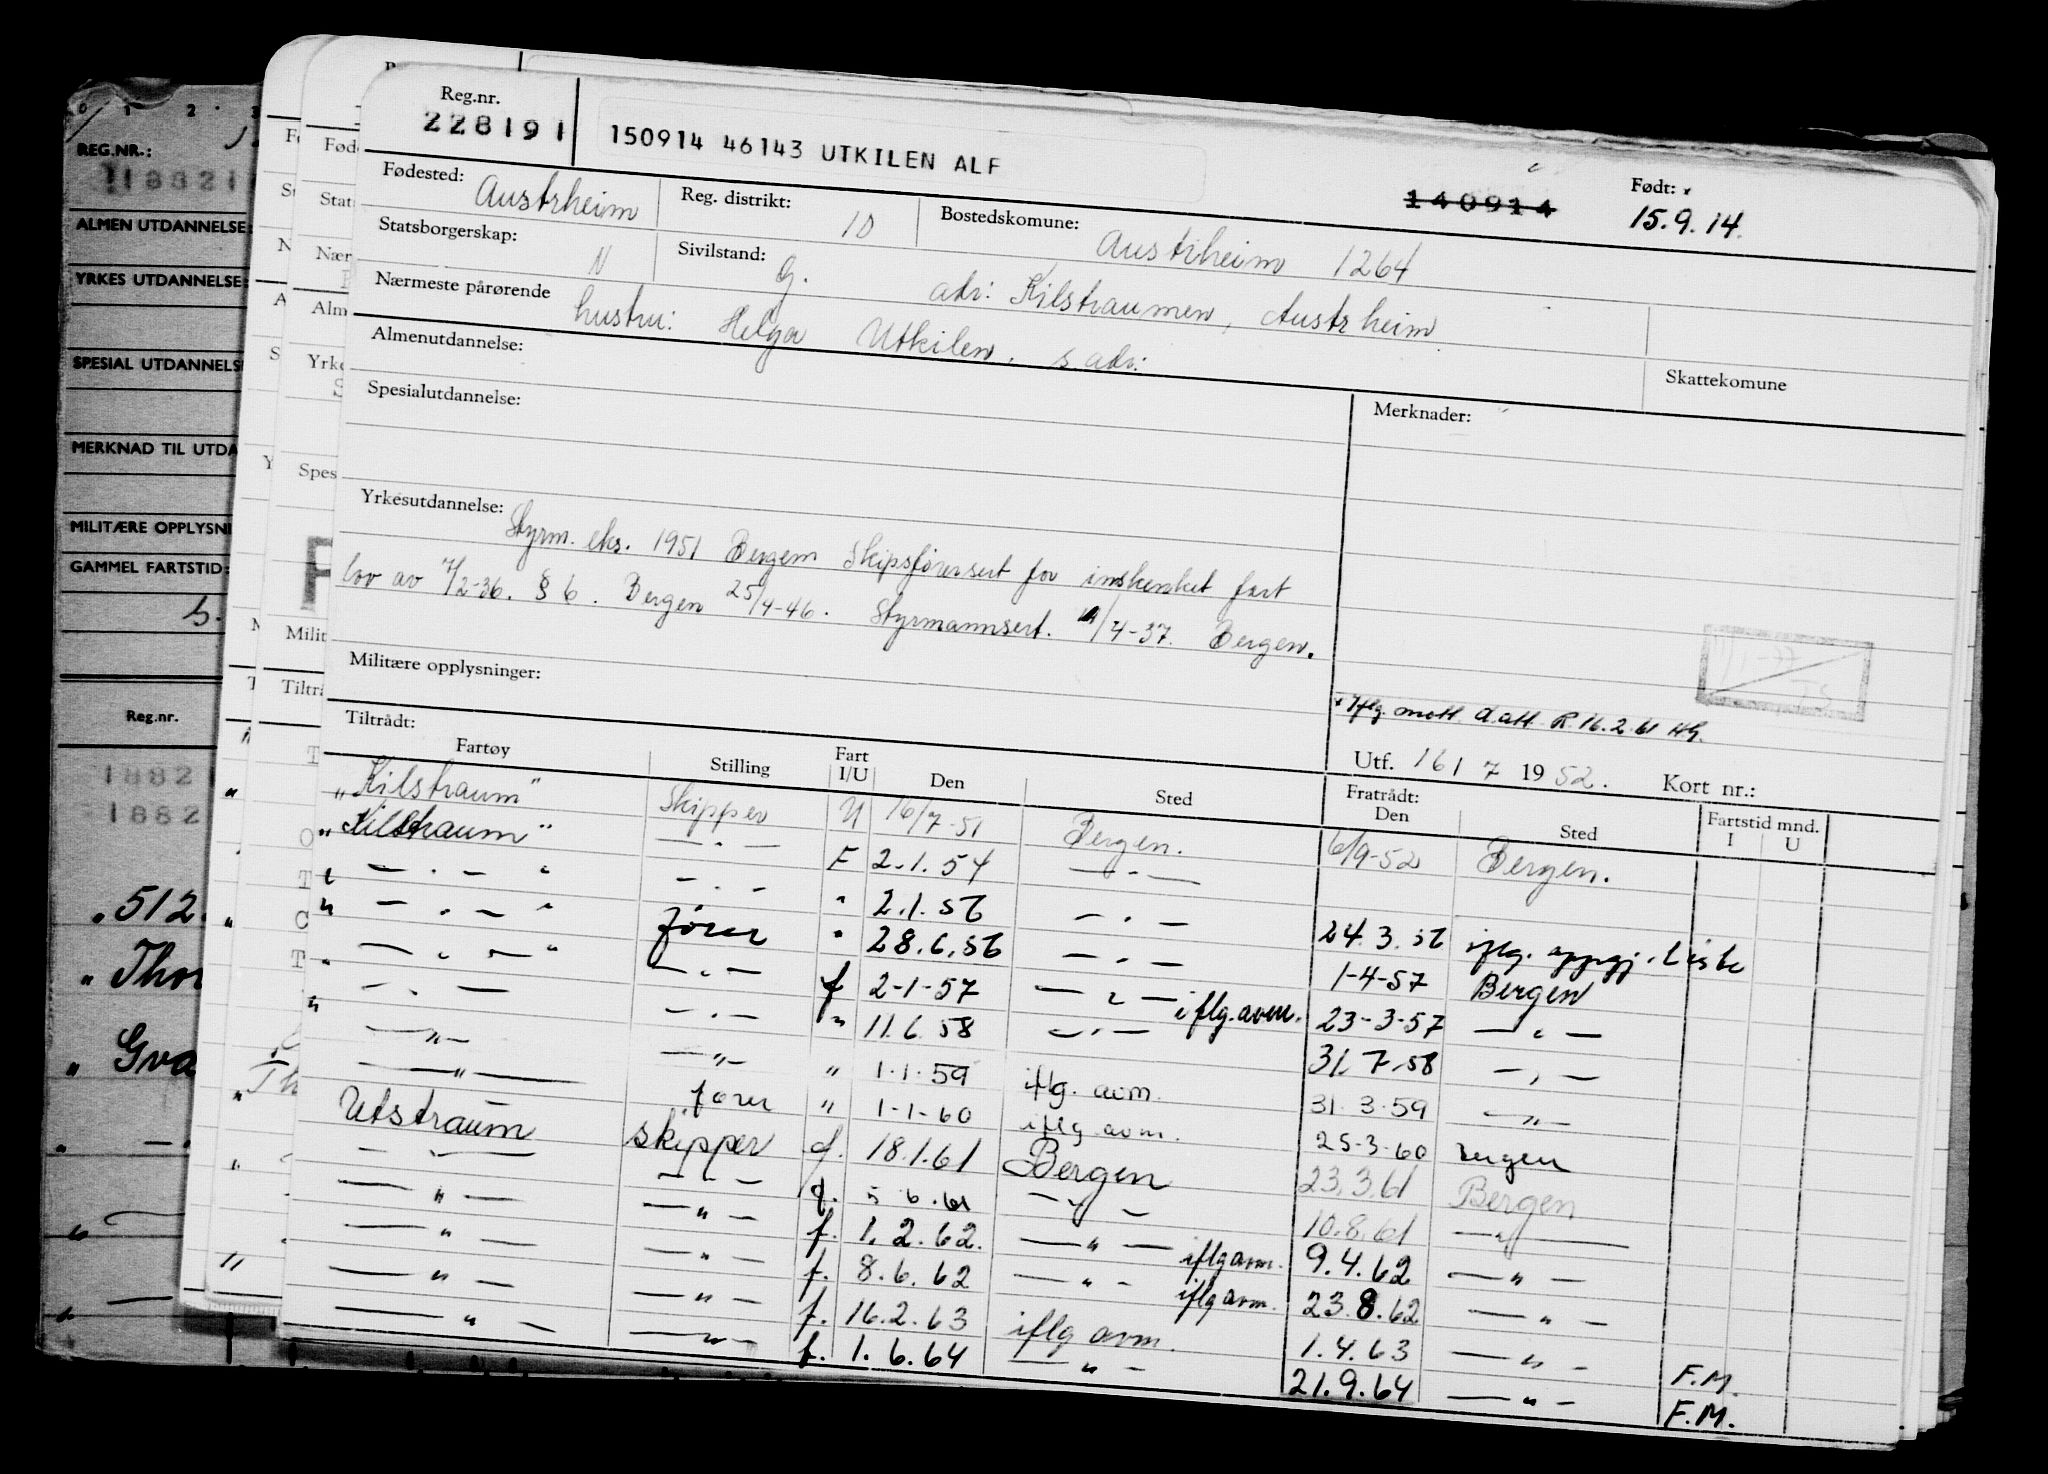 Reg.nr.
228191
150914 46143 UTKILEN ALF
140914
Født:
15.9.14.
Fødested: Austrheim
Reg. distrikt: 10
Bostedskomune: Austrheim 1264
Statsborgerskap: N
Sivilstand: G.
adr: Kilstraumen, Austrheim
Nærmeste pårørende hustru: Helga Utkilen, s. adr.
Skattekomune
Almenutdannelse:
Spesialutdannelse:
Merknader:
Yrkesutdannelse: Styrm. eks. 1951 Bergen Skipsførersert for innskrenket fart
lov av 7/2-36. § 6. Bergen 25/4-46. Styrmannsert. /4-37. Bergen.
Militære opplysninger:
Iflg. mott. d.att. R. 16.2.61 HG.
Utf. 16/7 1952. Kort nr.:
Tiltrådt:
Fartøy Stilling Fart I/U Den Sted Fratrådt: Den Sted Fartstid mnd. I U
"Kilstraum" Skipper U 16/7-51 Bergen. 6/9-52 Bergen.
"Kilstraum" — " — F 2.1.54 — " —
" — " — " — " — " 2.1.56 — " — 24.3.56 iflg. oppgj. liste
" — " — " fører " 28.6.56 — " — 1-4-57 Bergen
" — " — " — " — f 2-1-57 — " — iflg. avm. 23-3-57 — " —
" — " — — " — " 11.6.58 — " — 31.7.58 — " —
— " — — " — " 1.1.59 iflg. avm. 31.3.59 — " —
— " — fører " 1-1-60 iflg. avm. 25-3-60 Bergen
Utstraum skipper f. 18.1.61 Bergen 23.3.61 Bergen
— " — — " — f. 5.6.61 — " — 10.8.61 — " —
— " — — " — f. 1.2.62. — " — iflg avm. 9.4.62 — " —
— " — — " — f. 8.6.62 — " — iflg avm. 23.8.62 — " —
— " — — " — f. 16.2.63 iflg avm. 1.4.63 — " — F.M.
— " — — " — f. 1.6.64 — " — 21.9.64 — " — F.M.
0 1 2 3
REG.NR.:
ALMEN UTDANNELSE:
YRKES UTDANNELSE:
SPESIAL UTDANNELSE
MERKNAD TIL UTDA
MILITÆRE OPPLYSNI
GAMMEL FARTSTID:
Reg.nr.
1882
1882
512
Thor
Gva